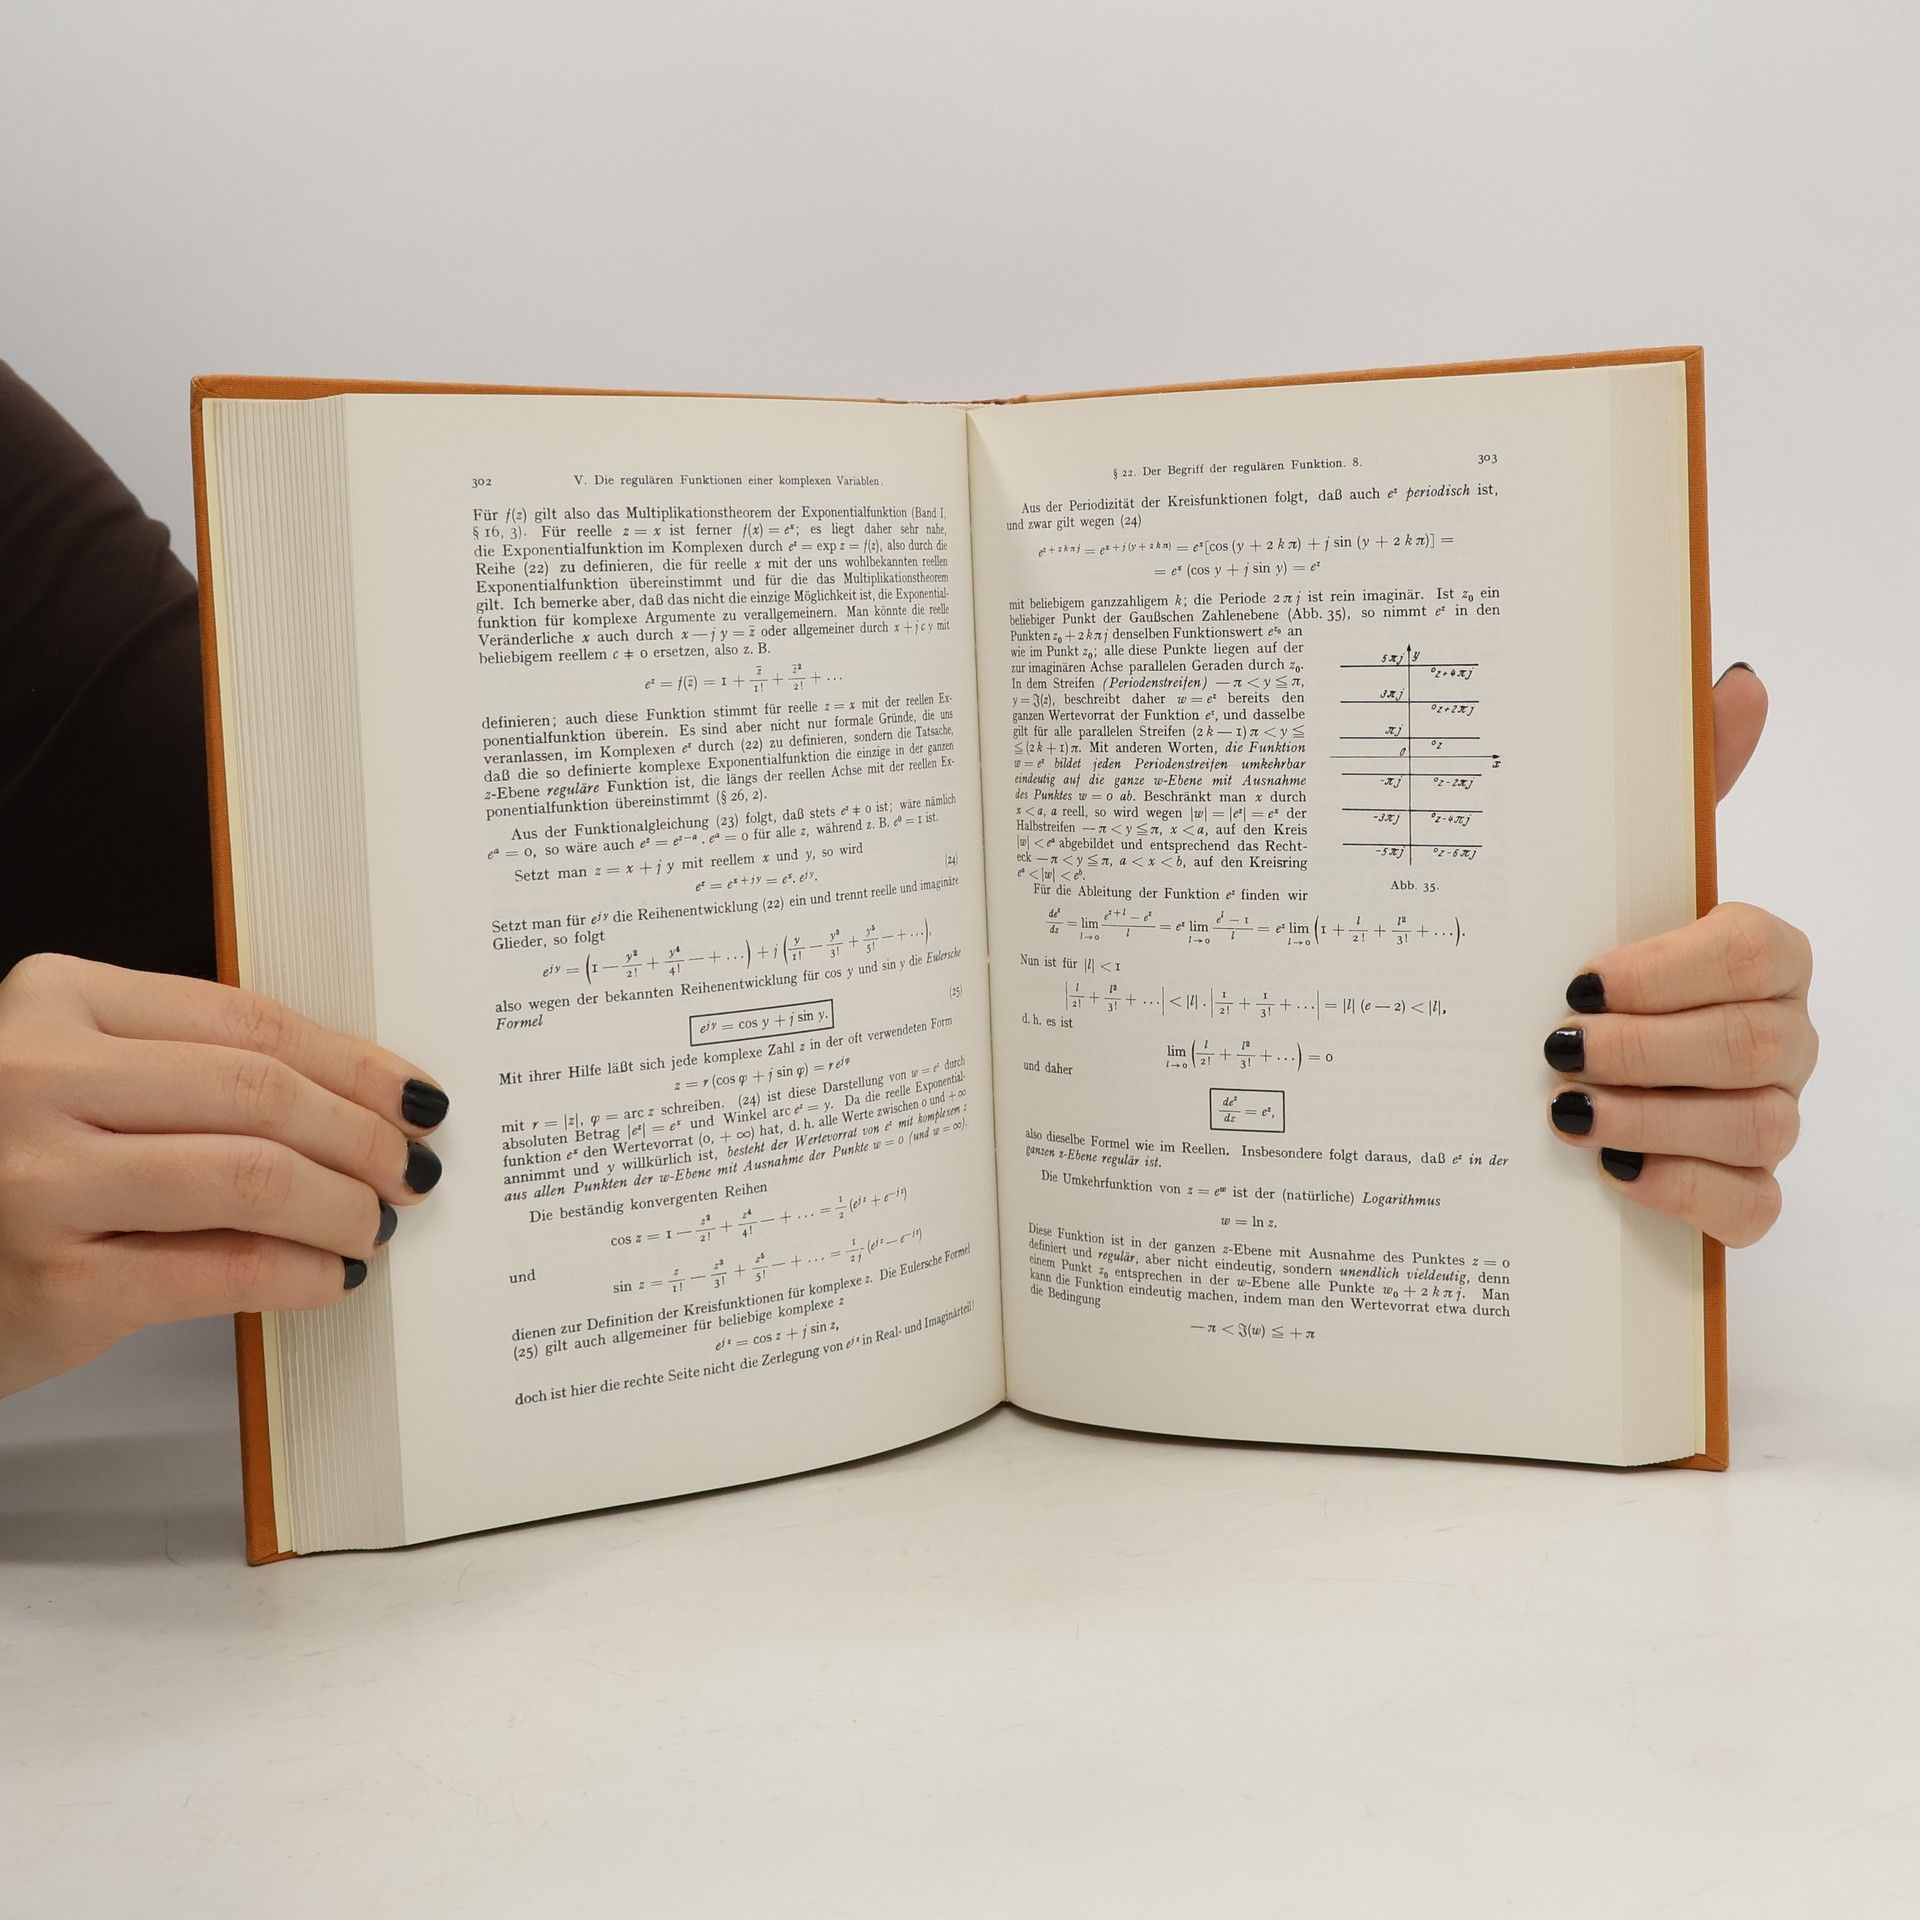 302 V. Die regulären Funktionen einer komplexen Variablen.
Für f(z) gilt also das Multiplikationstheorem der Exponentialfunktion (Band I,
§ 16, 3). Für reelle z = x ist ferner f(x) = eˣ; es liegt daher sehr nahe,
die Exponentialfunktion im Komplexen durch eᶻ = exp z = f(z), also durch die
Reihe (22) zu definieren, die für reelle x mit der uns wohlbekannten reellen
Exponentialfunktion übereinstimmt und für die das Multiplikationstheorem
gilt. Ich bemerke aber, daß das nicht die einzige Möglichkeit ist, die Exponential-
funktion für komplexe Argumente zu verallgemeinern. Man könnte die reelle
Veränderliche x auch durch x — j y = z̄ oder allgemeiner durch x + j c y mit
beliebigem reellem c ≠ 0 ersetzen, also z. B.
eᶻ = f(z̄) = 1 + z̄/1! + z̄²/2! + ...
definieren; auch diese Funktion stimmt für reelle z = x mit der reellen Ex-
ponentialfunktion überein. Es sind aber nicht nur formale Gründe, die uns
veranlassen, im Komplexen eᶻ durch (22) zu definieren, sondern die Tatsache,
daß die so definierte komplexe Exponentialfunktion die einzige in der ganzen
z-Ebene reguläre Funktion ist, die längs der reellen Achse mit der reellen Ex-
ponentialfunktion übereinstimmt (§ 26, 2).
Aus der Funktionalgleichung (23) folgt, daß stets eᶻ ≠ 0 ist; wäre nämlich
eᵃ = 0, so wäre auch eᶻ = eᶻ⁻ᵃ . eᵃ = 0 für alle z, während z. B. e⁰ = 1 ist.
Setzt man z = x + j y mit reellem x und y, so wird
eᶻ = eˣ⁺ʲʸ = eˣ. eʲʸ. (24)
Setzt man für eʲʸ die Reihenentwicklung (22) ein und trennt reelle und imaginäre
Glieder, so folgt
eʲʸ = (1 — y²/2! + y⁴/4! — + ...) + j (y/1! — y³/3! + y⁵/5! — + ...),
also wegen der bekannten Reihenentwicklung für cos y und sin y die Eulersche
Formel
eʲʸ = cos y + j sin y. (25)
Mit ihrer Hilfe läßt sich jede komplexe Zahl z in der oft verwendeten Form
z = r (cos φ + j sin φ) = r eʲᵠ
mit r = |z|, φ = arc z schreiben. (24) ist diese Darstellung von w = eᶻ durch
absoluten Betrag |eᶻ| = eˣ und Winkel arc eᶻ = y. Da die reelle Exponential-
funktion eˣ den Wertevorrat (0, + ∞) hat, d. h. alle Werte zwischen 0 und + ∞
annimmt und y willkürlich ist, besteht der Wertevorrat von eᶻ mit komplexem z
aus allen Punkten der w-Ebene mit Ausnahme der Punkte w = 0 (und w = ∞).
Die beständig konvergenten Reihen
cos z = 1 — z²/2! + z⁴/4! — + ... = 1/2 (eʲᶻ + e⁻ʲᶻ)
und
sin z = z/1! — z³/3! + z⁵/5! — + ... = 1/2j (eʲᶻ — e⁻ʲᶻ)
dienen zur Definition der Kreisfunktionen für komplexe z. Die Eulersche Formel
(25) gilt auch allgemeiner für beliebige komplexe z
eʲᶻ = cos z + j sin z,
doch ist hier die rechte Seite nicht die Zerlegung von eʲᶻ in Real- und Imaginärteil!
§ 22. Der Begriff der regulären Funktion. 8. 303
Aus der Periodizität der Kreisfunktionen folgt, daß auch eᶻ periodisch ist,
und zwar gilt wegen (24)
eᶻ⁺²ᵏπʲ = eˣ⁺ʲ⁽ʸ⁺²ᵏπ⁾ = eˣ[cos (y + 2 k π) + j sin (y + 2 k π)] =
= eˣ (cos y + j sin y) = eᶻ
mit beliebigem ganzzahligem k; die Periode 2 π j ist rein imaginär. Ist z₀ ein
beliebiger Punkt der Gaußschen Zahlenebene (Abb. 35), so nimmt eᶻ in den
Punkten z₀ + 2 k π j denselben Funktionswert eᶻ⁰ an
wie im Punkt z₀; alle diese Punkte liegen auf der
zur imaginären Achse parallelen Geraden durch z₀.
In dem Streifen (Periodenstreifen) — π < y ≦ π,
y = ℑ(z), beschreibt daher w = eᶻ bereits den
ganzen Wertevorrat der Funktion eᶻ, und dasselbe
gilt für alle parallelen Streifen (2 k — 1) π < y ≦
≦ (2 k + 1) π. Mit anderen Worten, die Funktion
w = eᶻ bildet jeden Periodenstreifen umkehrbar
eindeutig auf die ganze w-Ebene mit Ausnahme
des Punktes w = 0 ab. Beschränkt man x durch
x < a, a reell, so wird wegen |w| = |eᶻ| = eˣ der
Halbstreifen — π < y ≦ π, x < a, auf den Kreis
|w| < eᵃ abgebildet und entsprechend das Recht-
eck — π < y ≦ π, a < x < b, auf den Kreisring
eᵃ < |w| < eᵇ.
5πj y
°z+4πj
3πj
°z+2πj
πj
°z
0 x
-πj °z-2πj
-3πj °z-4πj
-5πj °z-6πj
Abb. 35.
Für die Ableitung der Funktion eᶻ finden wir
deᶻ/dz = lim l→0 (eᶻ⁺ˡ — eᶻ)/l = eᶻ lim l→0 (eˡ — 1)/l = eᶻ lim l→0 (1 + l/2! + l²/3! + ...).
Nun ist für |l| < 1
|l/2! + l²/3! + ...| < |l| . |1/2! + 1/3! + ...| = |l| (e — 2) < |l|,
d. h. es ist
lim l→0 (l/2! + l²/3! + ...) = 0
und daher
deᶻ/dz = eᶻ,
also dieselbe Formel wie im Reellen. Insbesondere folgt daraus, daß eᶻ in der
ganzen z-Ebene regulär ist.
Die Umkehrfunktion von z = eʷ ist der (natürliche) Logarithmus
w = ln z.
Diese Funktion ist in der ganzen z-Ebene mit Ausnahme des Punktes z = 0
definiert und regulär, aber nicht eindeutig, sondern unendlich vieldeutig, denn
einem Punkt z₀ entsprechen in der w-Ebene alle Punkte w₀ + 2 k π j. Man
kann die Funktion eindeutig machen, indem man den Wertevorrat etwa durch
die Bedingung
— π < ℑ(w) ≦ + π